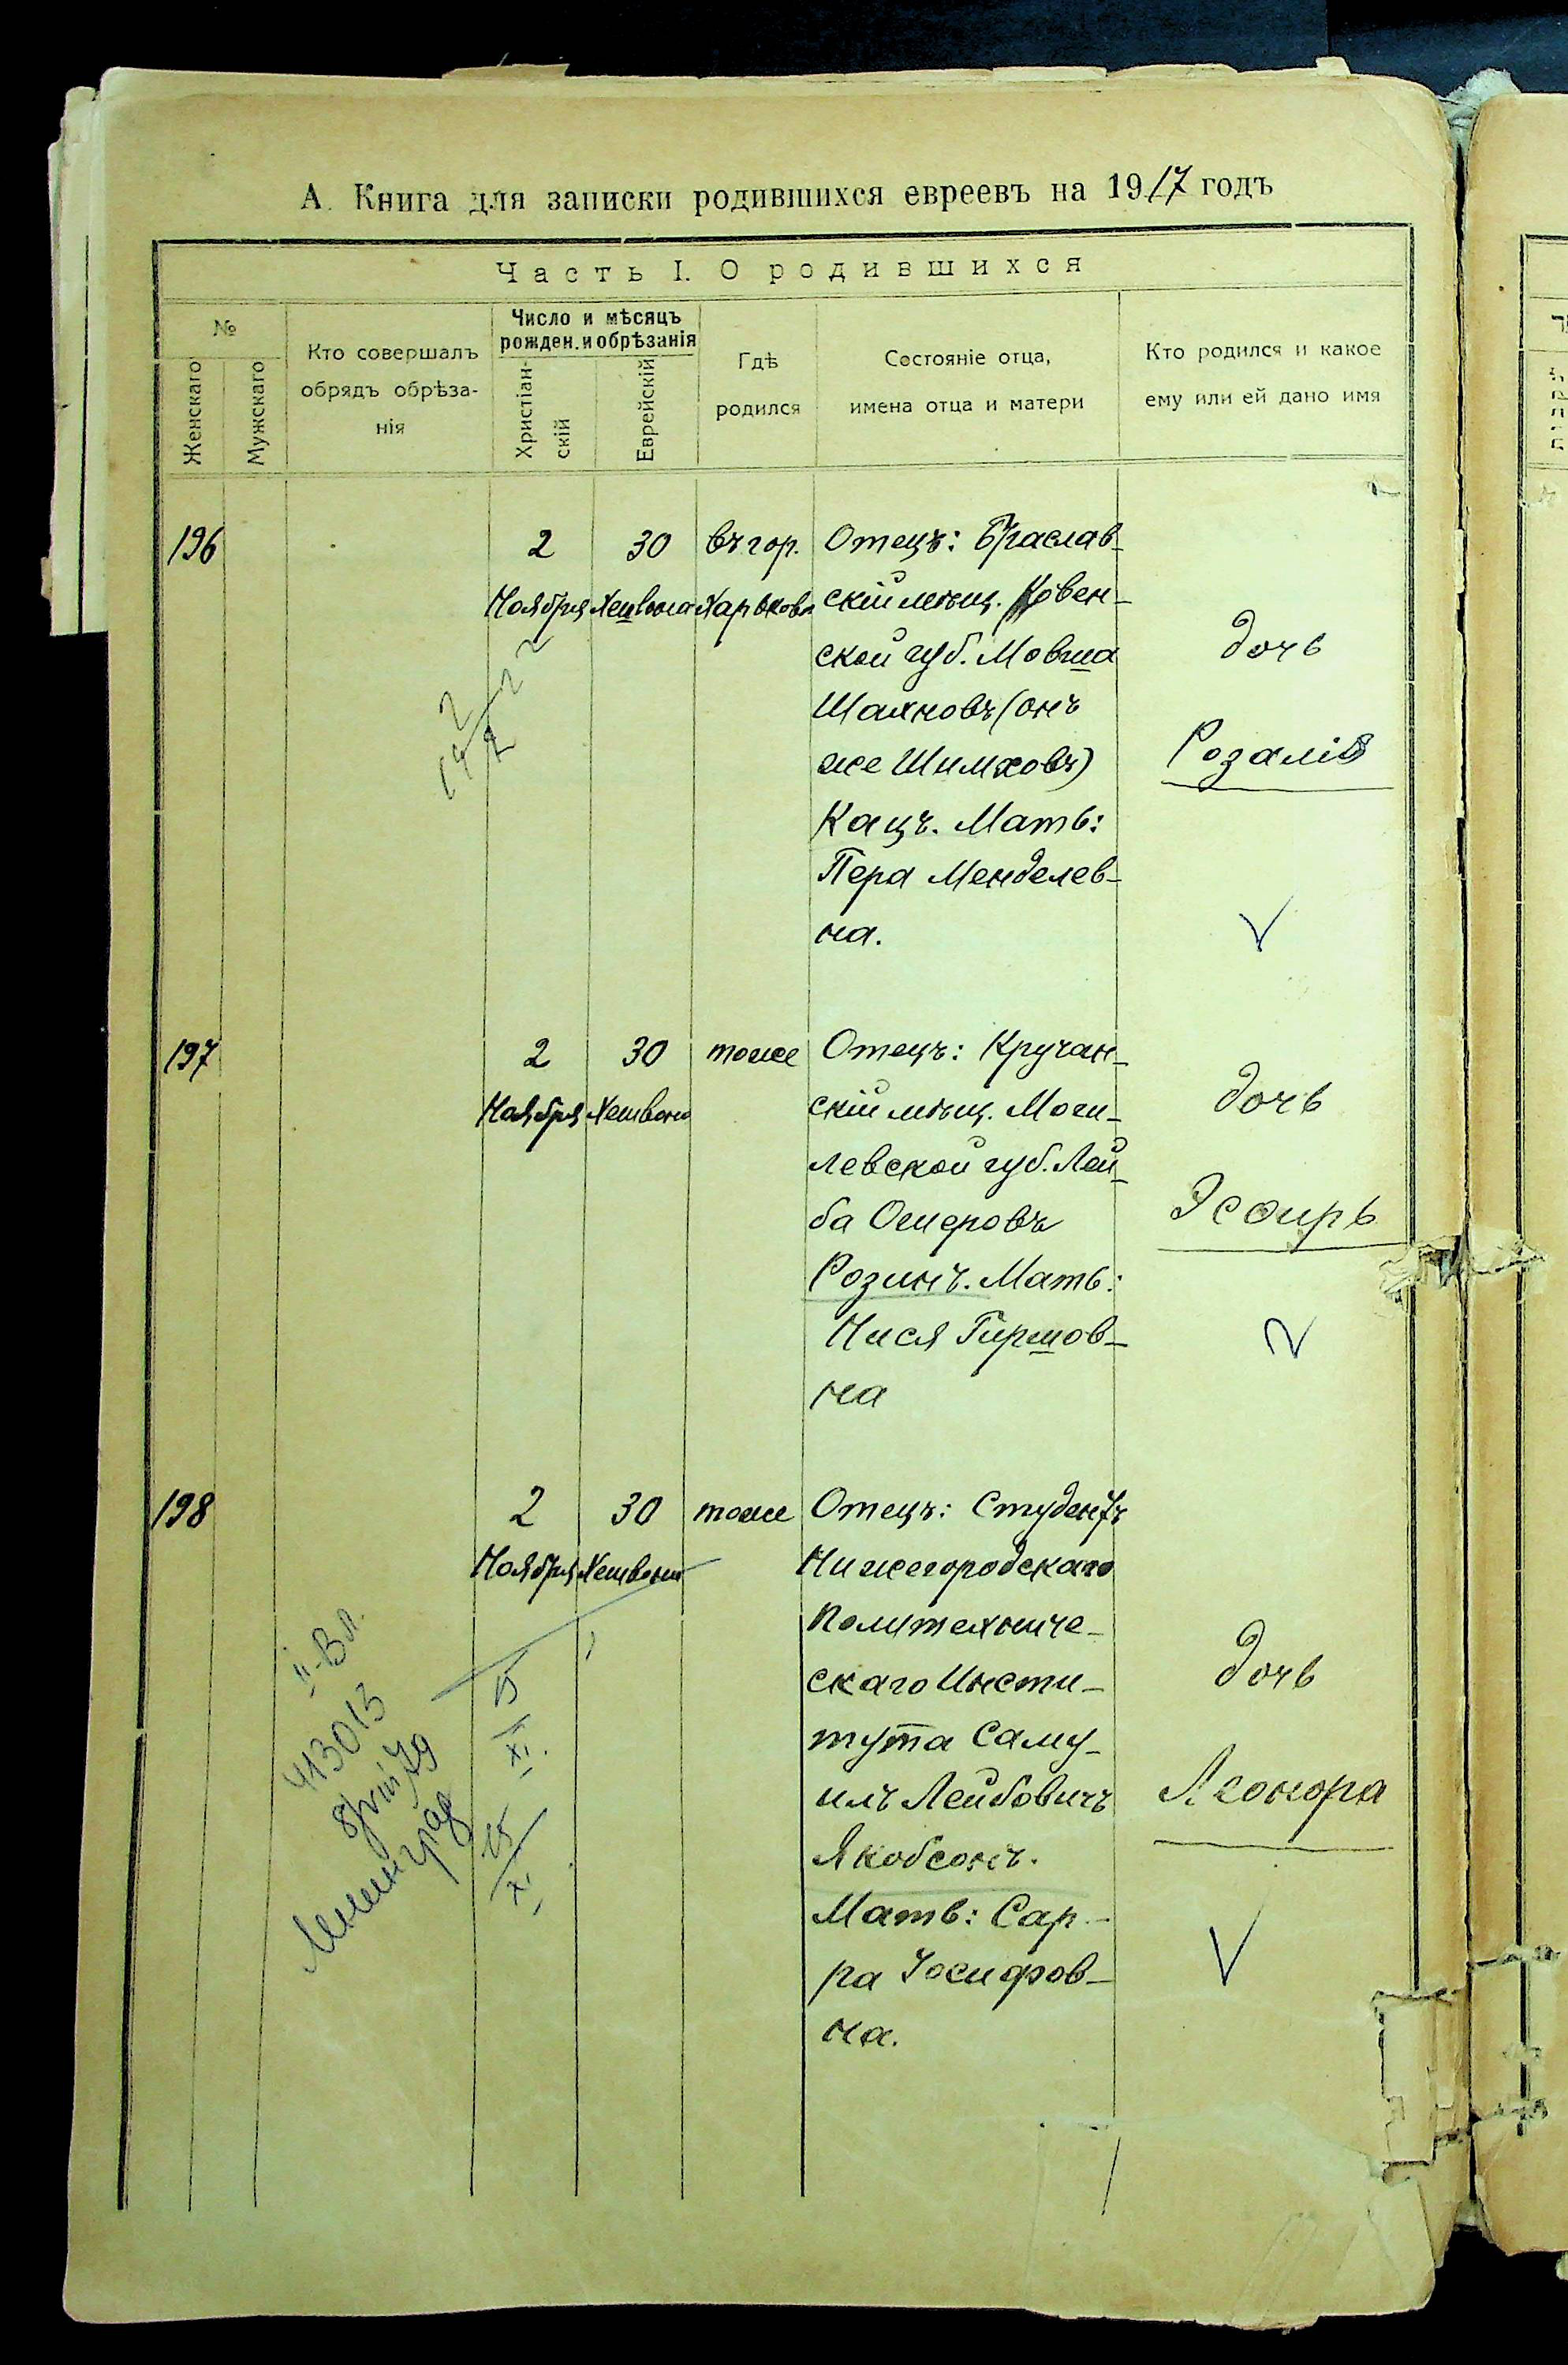 А. Книга для записки родившихся евреевъ на 1917 годъ
Часть I. О родившихся
№
Женскаго
Мужскаго
Кто совершалъ
обрядъ обрѣза-
нія
Число и мѣсяцъ
рожден. и обрѣзанія
Христіан-
скій
Еврейскій
Гдѣ
родился
Состояніе отца,
имена отца и матери
Кто родился и какое
ему или ей дано имя
196
2
Ноября
30
Хешвона
въ гор.
Харьковѣ
Отецъ: Браслав-
скій мѣщ. Ковен-
ской губ. Мовша
Шахновъ (онъ
же Шимховъ)
Кацъ. Мать:
Пера Менделев-
на.
дочь
Розалія
197
2
Ноября
30
Хешвона
тоже
Отецъ: Кручан-
скій мѣщ. Моги-
левской губ. Лей-
ба Ошеровъ
Розинъ. Мать:
Нися Гиршов-
на
дочь
Эсѳирь
198
2
Ноября
30
Хешвона
тоже
Отецъ: Студентъ
Нижегородскаго
Политехниче-
скаго Инсти-
тута Саму-
илъ Лейбовичъ
Якобсонъ.
Мать: Сар-
ра Іосифов-
на.
дочь
Леонора
II-ВЛ
413013
8/VIII 79
Ленинград
15
XI
15
XI